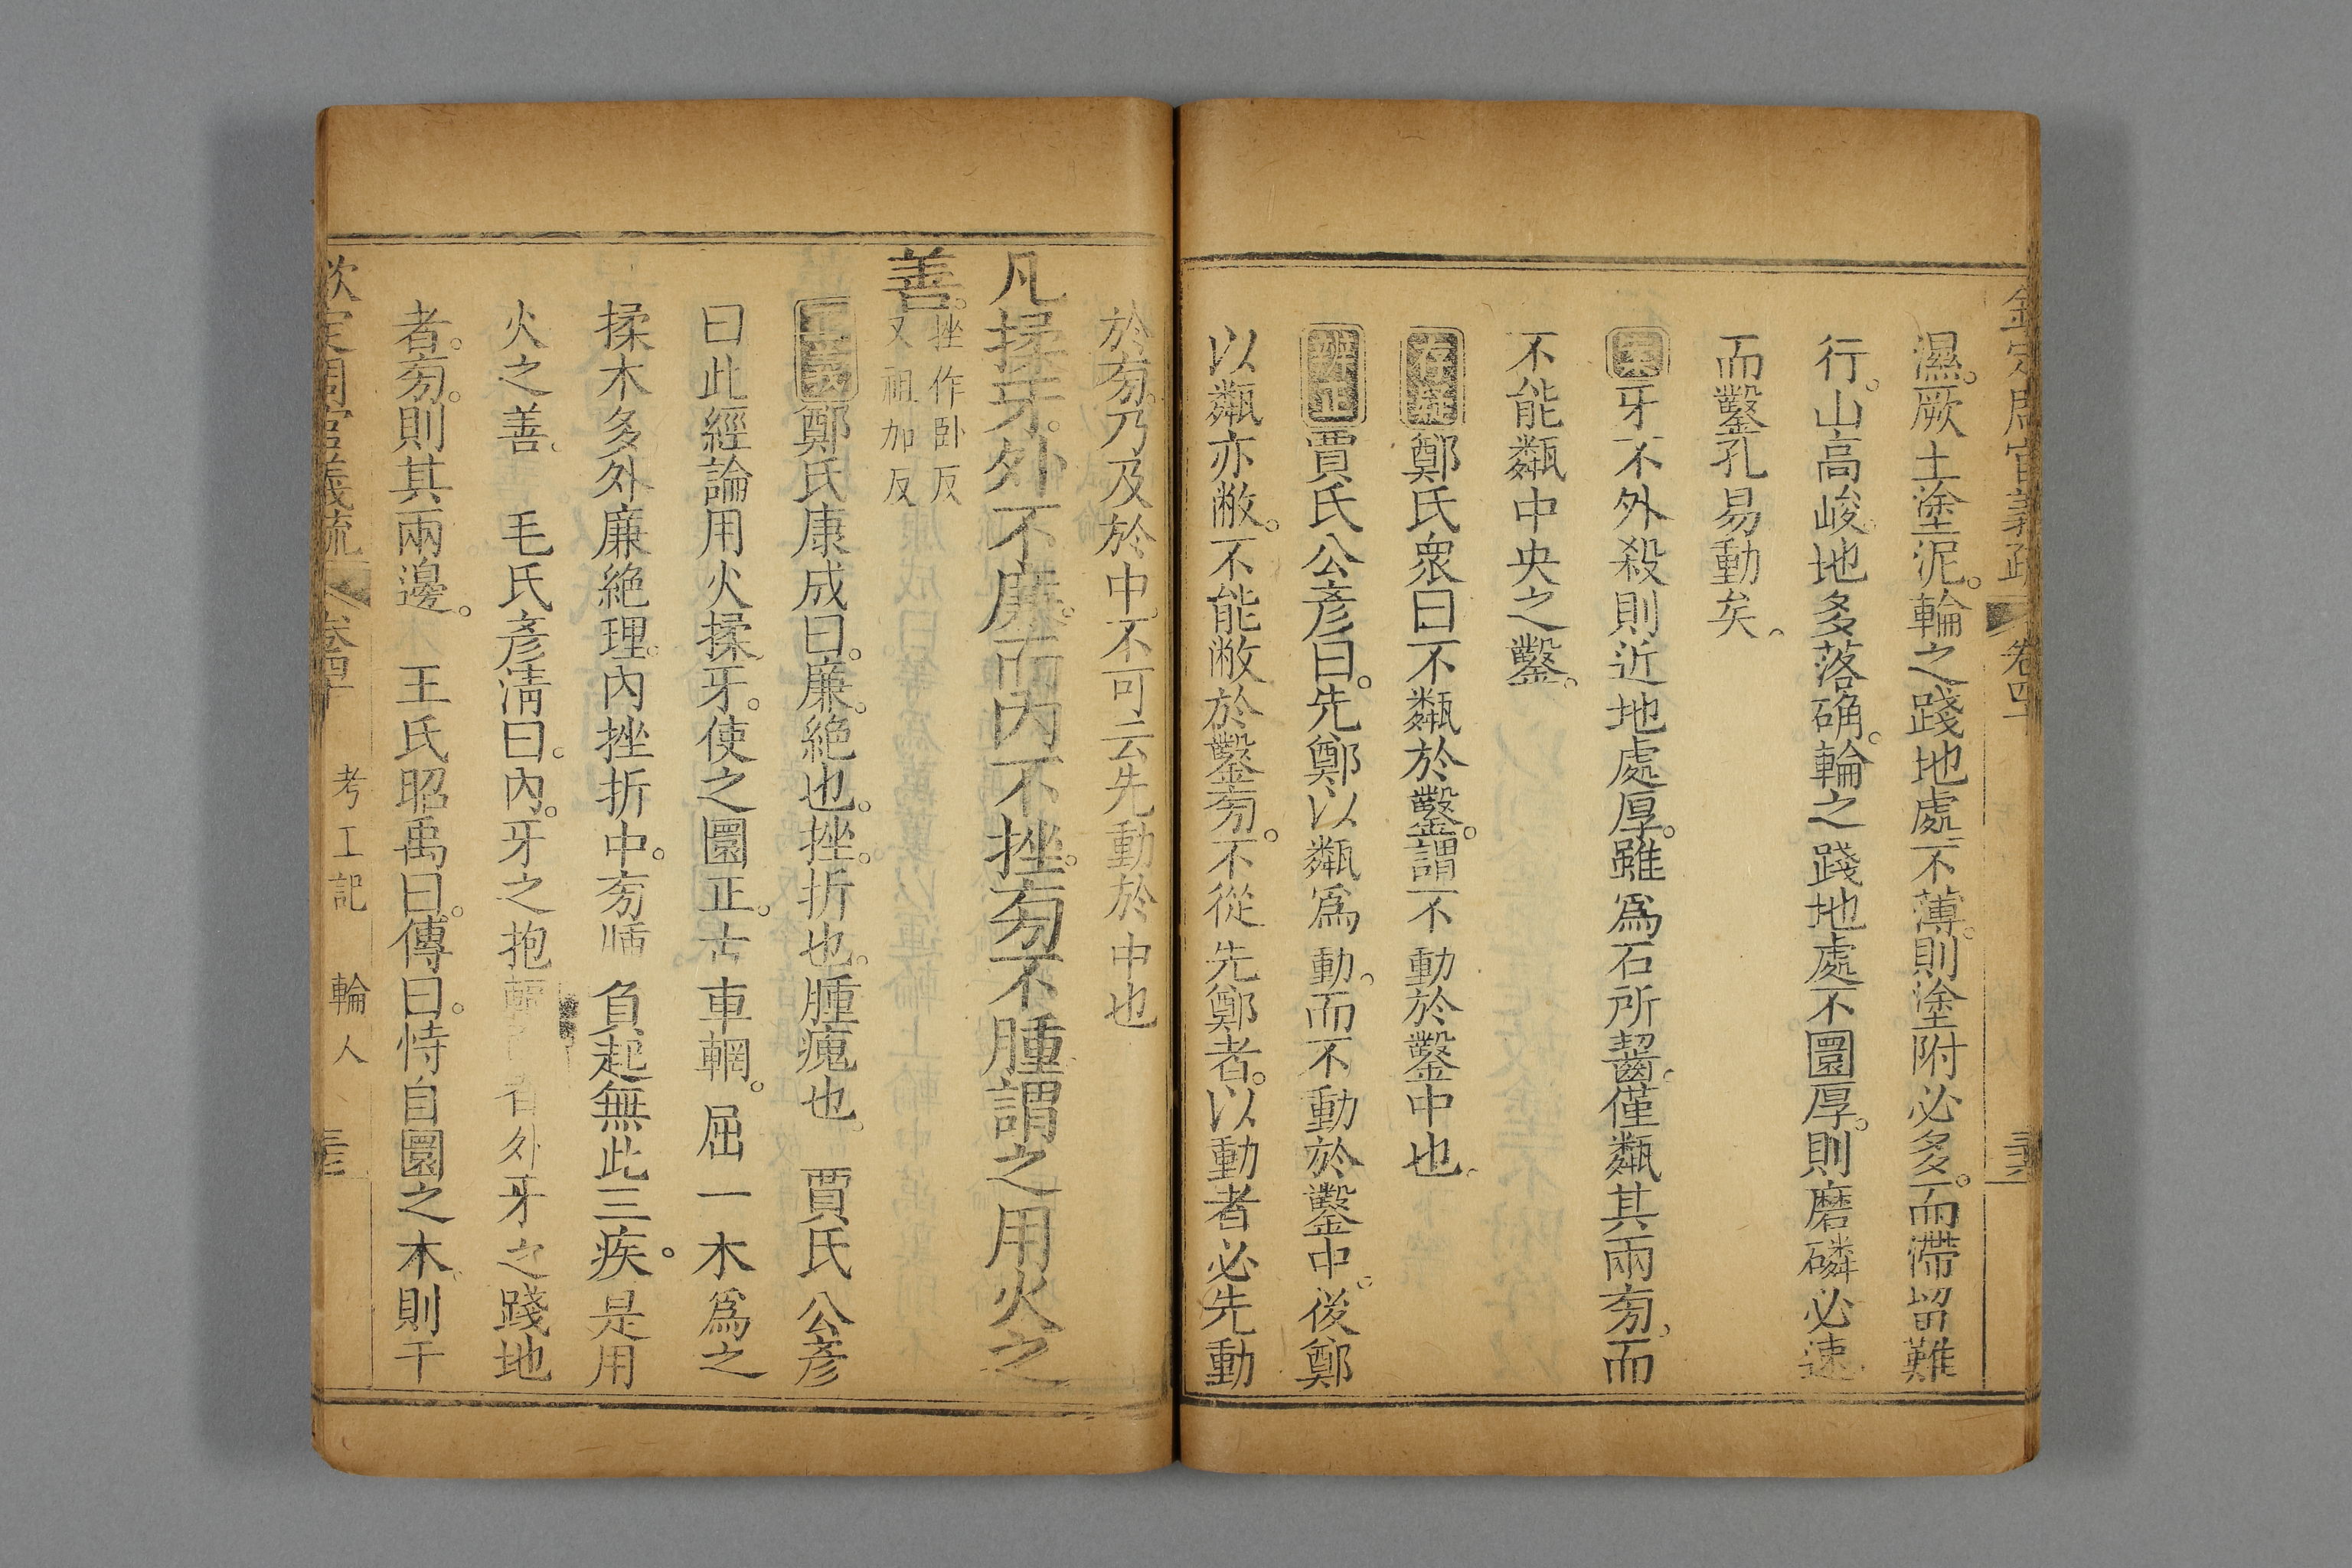 欽定周官義疏 卷四十
濕。厥土塗泥。輪之踐地處不薄。則塗附必多。而滯留難
行。山高峻。地多落确。輪之踐地處不圜厚。則磨磷必速
而鑿孔易動矣。
案牙不外殺則近地處厚。雖爲石所齧。僅甐其兩㫄。而
不能甐中央之鑿。
存疑鄭氏衆曰不甐於鑿。謂不動於鑿中也。
辨正賈氏公彥曰。先鄭以甐爲動。而不動於鑿中。後鄭
以甐亦敝。不能敝於鑿㫄。不從先鄭者。以動者必先動
於㫄。乃及於中。不可云先動於中也
凡揉牙。外不廉。而內不挫。㫄不腫。謂之用火之
善。挫作卧反
又祖加反
正義鄭氏康成曰。廉。絶也。挫。折也。腫瘣也。 賈氏公彥
曰此經論用火揉牙。使之圜正。古車輞。屈一木爲之
揉木多外廉絶理。內挫折中。㫄腫負起無此三疾。是用
火之善。 毛氏彥淸曰。內。牙之抱者外牙之踐地
者。㫄。則其兩邊。 王氏昭禹曰。傳曰。恃自圜之木。則千
欽定周官義疏 卷四十 考工記 輪人